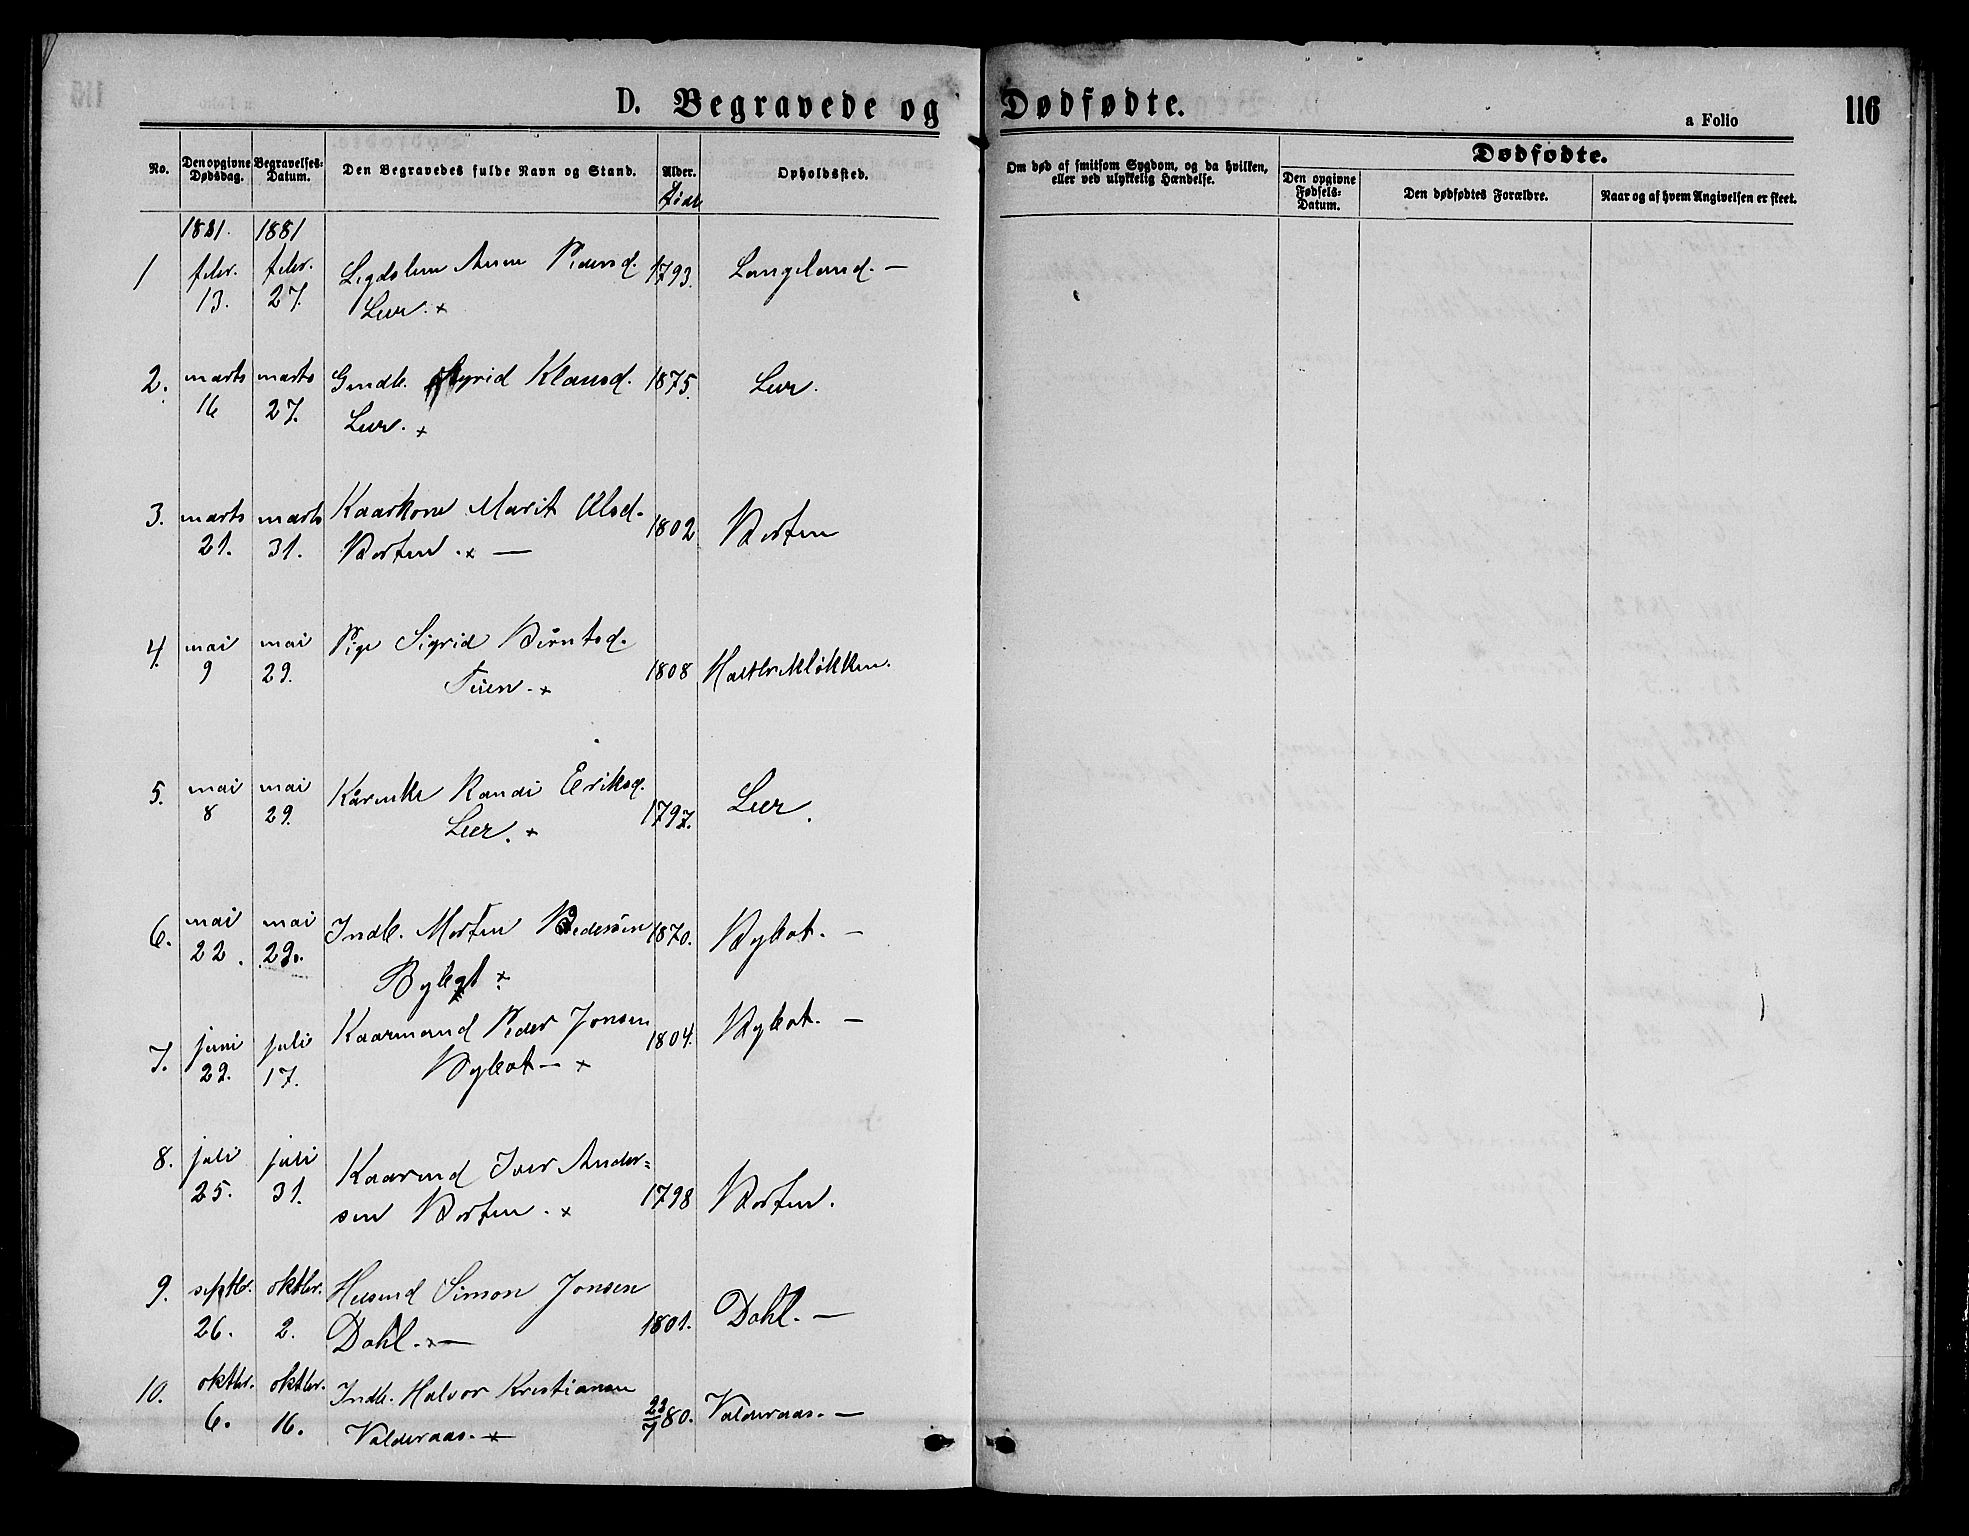 D. Begravede og Dødfødte.
a Folio
116
No.
Den opgivne Dødsdag.
Begravelses-Datum.
Den Begravedes fulde Navn og Stand.
Alder.
Opholdssted.
Om død af smitsom Sygdom, og da hvilken,
eller ved ulykkelig Hændelse.
Dødfødte.
Den opgivne Fødsels-Datum.
Den dødfødtes Forældre.
Naar og af hvem Angivelsen er skeet.
1881. 1881
1 febr. febr. Legdslem Anne Pedersd. 1793. Langeland. —
13. 27. Leer. x
2. marts marts Gmdb. Sigrid Klausd. 1875. Leer.
16 27. Leer. x
3. marts marts Kaarkone Marit Olsd. 1802 Borten
21. 31. Borten. x —
4. mai mai Pige Sigrid Berntsd. 1808
9 29. x
5. mai mai Kårenke Randi Eriksd. 1797. Leer.
8 29. Leer. x
6. mai mai Indb. Morten Pedersen 1870. Bylæt. —
22. 29. x
7. juni juli Kaarmand Peder Jonsen 1804. Bylæt. —
29. 17. Bylæt — x
8. juli juli Kaarmd Iver Ander=
25. 31. sen Borten. x 1798 Borten.
9. septbr. oktbr. Husmd Simon Jonsen
26. 2. Dahl. x — 1801. Dahl. —
10. oktbr. oktbr. Indb. Halvor Kristiansen 23/7 80. Valderaas. —
6. 16. Valderaas. x